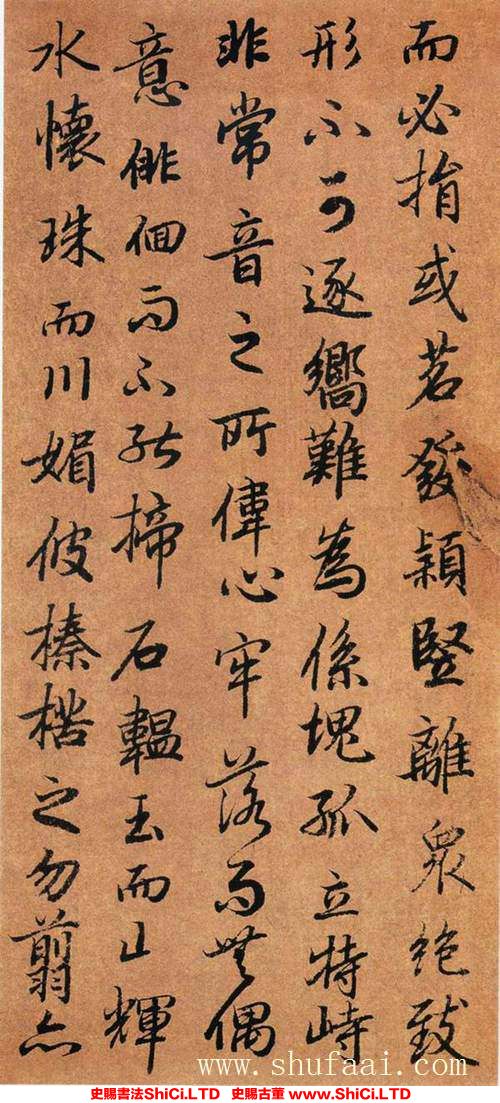 而必揩或苕發穎豎離衆絶致
形不可逐嚮難為係塊孤立特峙
非常音之所偉心牢落而無偶
意俳佪而不能揥石韞玉而山輝
水懷珠而川媚彼榛楛之勿翦亦
www.shufaai.com
史賜書法ShiCi.LTD 史賜古董 www.ShiCi.LTD